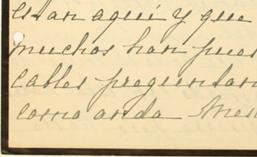 estan aquí y que
muchos han pues
cables preguntan
como anda Mex